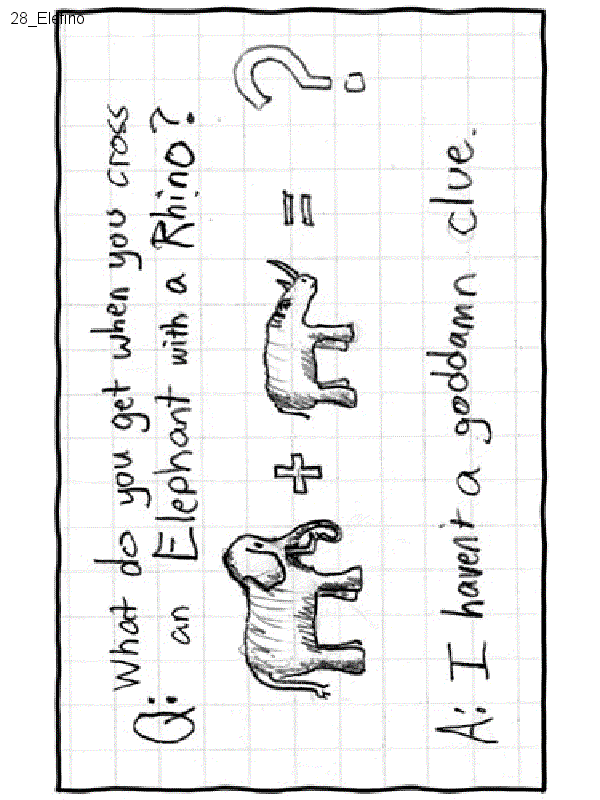 28_Elefino
Q: What do you get when you cross
an Elephant with a Rhino?
+ = ?
A: I haven't a goddamn clue.